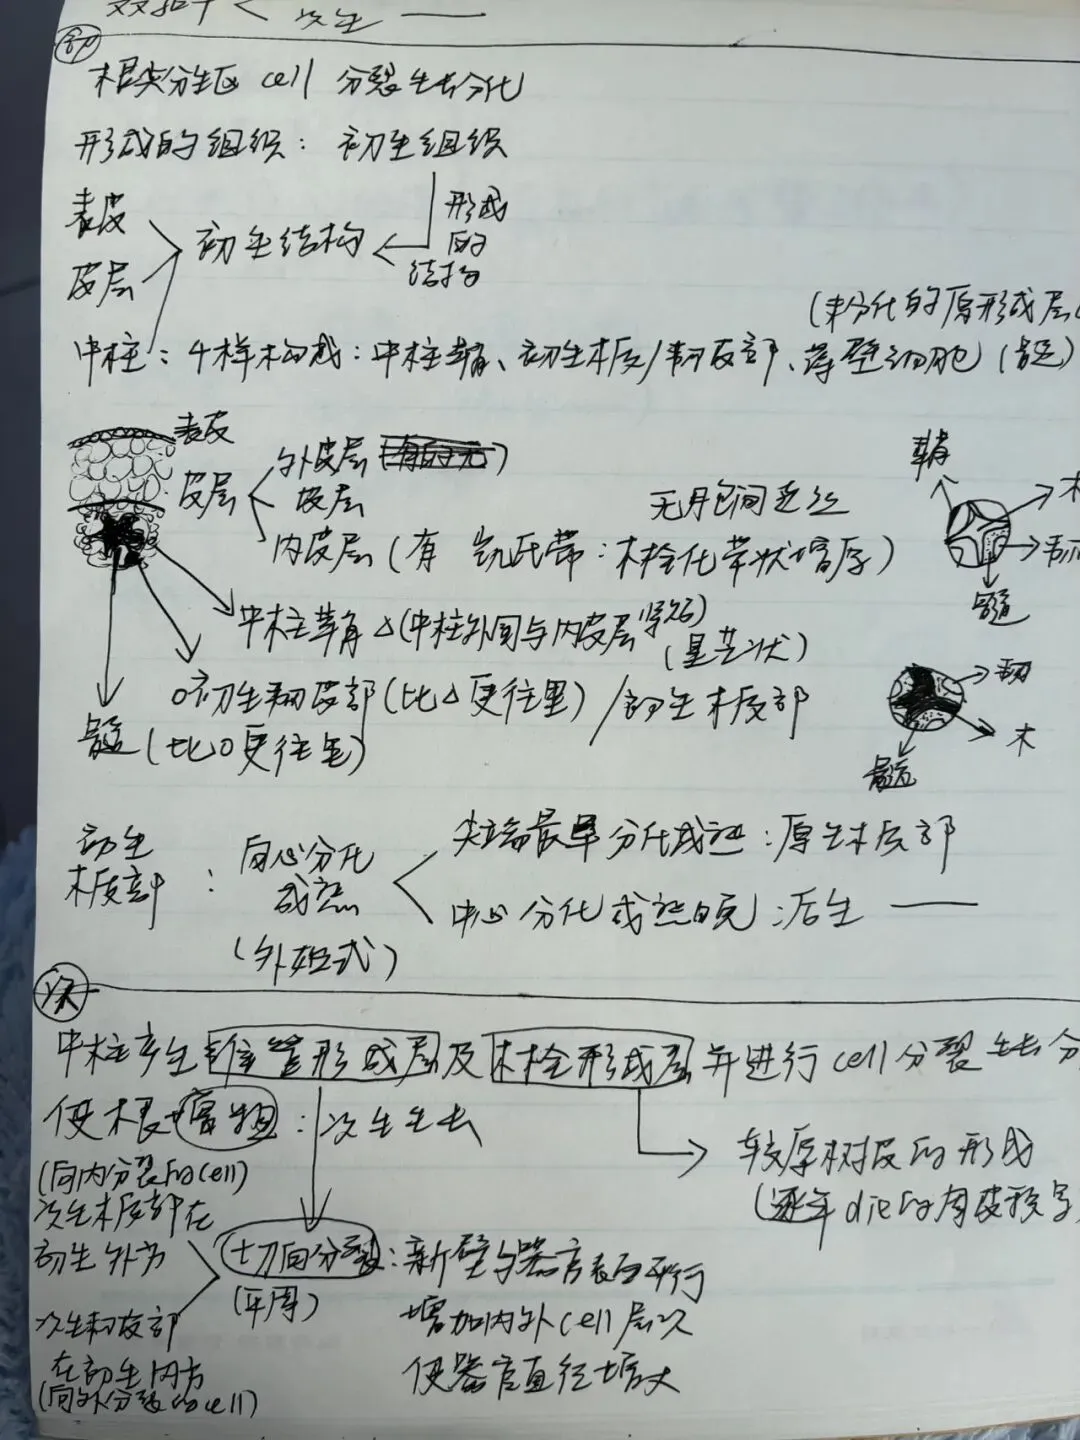 双子叶 < 次生 ——
初
根尖分生区 cell 分裂生长分化
形成的组织：初生组织
形成的结构
表皮
皮层
初生结构
(未分化的原形成层
中柱：4样构成：中柱鞘、初生木质/韧皮部、薄壁细胞(髓)
表皮
皮层
外皮层
皮层
无胞间连丝
内皮层(有 凯氏带：木栓化带状增厚)
中柱鞘△(中柱外围与内皮层紧贴)
(星芒状)
O初生韧皮部(比△更往里)/初生木质部
髓(比O更往里)
鞘
木
韧
髓
韧
木
髓
初生木质部：向心分化成熟
(外始式)
尖端最早分化成熟：原生木质部
中心分化成熟晚：后生 ——
次
中柱产生维管形成层及木栓形成层并进行cell分裂生长分
使根增粗：次生生长
较厚树皮的形成
(逐年die的周皮积
(向内分裂的cell)
次生木质部在
初生外方
次生韧皮部
在初生内方
(向外分裂的cell)
切向分裂：新壁与器官表面平行
(平周)
增加内外cell层次
使器官直径增大